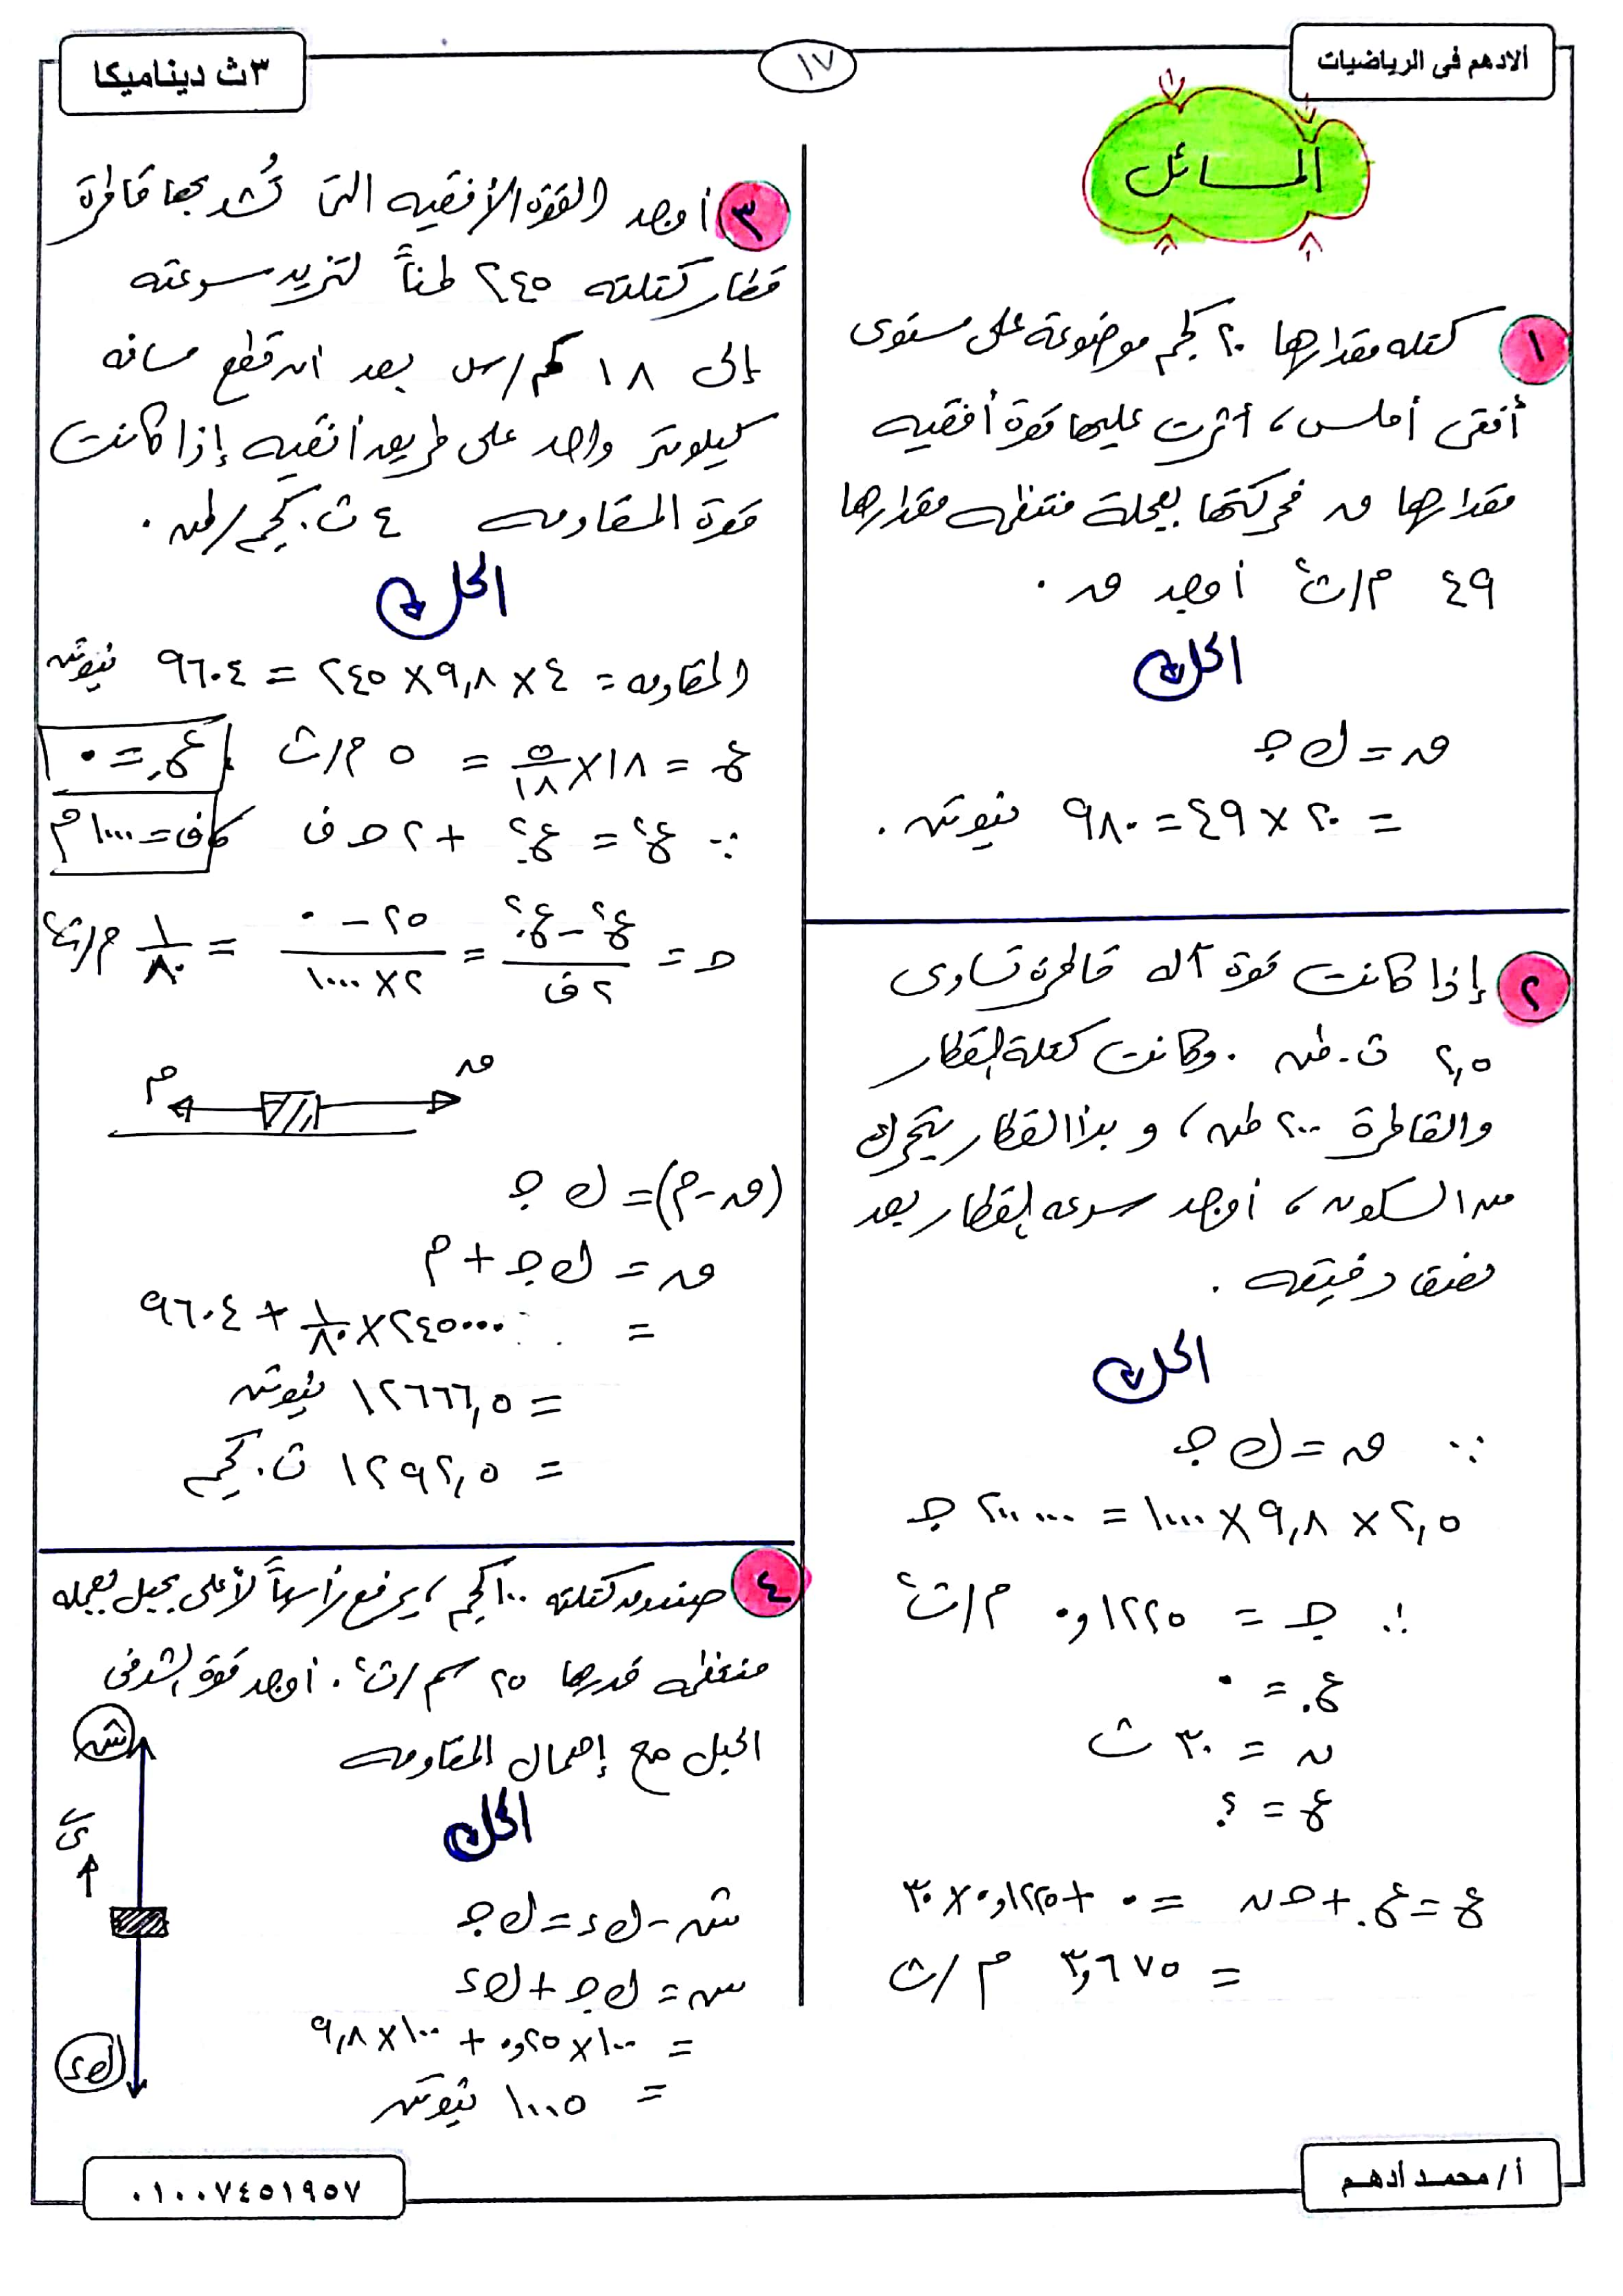 الادهم فى الرياضيات
١٧
٣ث ديناميكا
المسائل
١ كتله مقدارها ٢٠ كجم موضوعة على مستوى
أفقى أملس، أثرت عليها قوة أفقيه
مقدارها ق فحركتها بعجلة منتظمه مقدارها
٤٩ م/ث٢ أوجد ق .
الحل
ق = ك جـ
= ٢٠ × ٤٩ = ٩٨٠ نيوتن .
٢ إذا كانت قوة آله قاطرة تساوى
٢,٥ ث.طن . وكانت كتلة القطار
والقاطرة ٢٠٠ طن، وبدأ القطار يتحرك
من السكون، أوجد سرعه القطار بعد
نصف دقيقه .
الحل
∵ ق = ك جـ
٢,٥ × ٩,٨ × ١٠٠٠ = ٢٠٠٠٠٠ جـ
∴ جـ = ٠,١٢٢٥ م/ث٢
ع. = ٠
ن = ٣٠ ث
ع = ؟
ع = ع. + حـ ن = ٠ + ٠,١٢٢٥ × ٣٠
= ٣,٦٧٥ م/ث
٣ أوجد القوة الأفقيه التى تُشد بها قاطرة
قطار كتلته ٢٤٥ طناً لتزيد سرعته
إلى ١٨ كم/س بعد ان قطع مسافه
كيلومتر واحد على طريق أفقيه إذا كانت
قوة المقاومه ٤ ث.كجم/طن .
الحل
المقاومه = ٤ × ٩,٨ × ٢٤٥ = ٩٦٠٤ نيوتن
ع = ١٨ × ٥/١٨ = ٥ م/ث ، ع. = ٠
∵ ع٢ = ع.٢ + ٢ حـ ف ، ف = ١٠٠٠ م
حـ = (ع٢ - ع.٢)/(٢ ف) = (٢٥ - ٠)/(٢ × ١٠٠٠) = ١/٨٠ م/ث٢
م ق
(ق - م) = ك جـ
ق = ك جـ + م
= ٢٤٥٠٠٠ × ١/٨٠ + ٩٦٠٤
= ١٢٦٦٦,٥ نيوتن
= ١٢٩٢,٥ ث.كجم
٤ صندوق كتلته ١٠٠ كجم، يرفع رأسياً لأعلى بحبل بعجله
منتظمه قدرها ٢٥ سم/ث٢ . أوجد قوة الشد فى
الحبل مع إهمال المقاومه
الحل
ش
ى
ك ء
ش - ك ء = ك جـ
ش = ك جـ + ك ء
= ١٠٠ × ٠,٢٥ + ١٠٠ × ٩,٨
= ١٠٠٥ نيوتن
أ/ محمد أدهم
٠١٠٠٧٤٥١٩٥٧